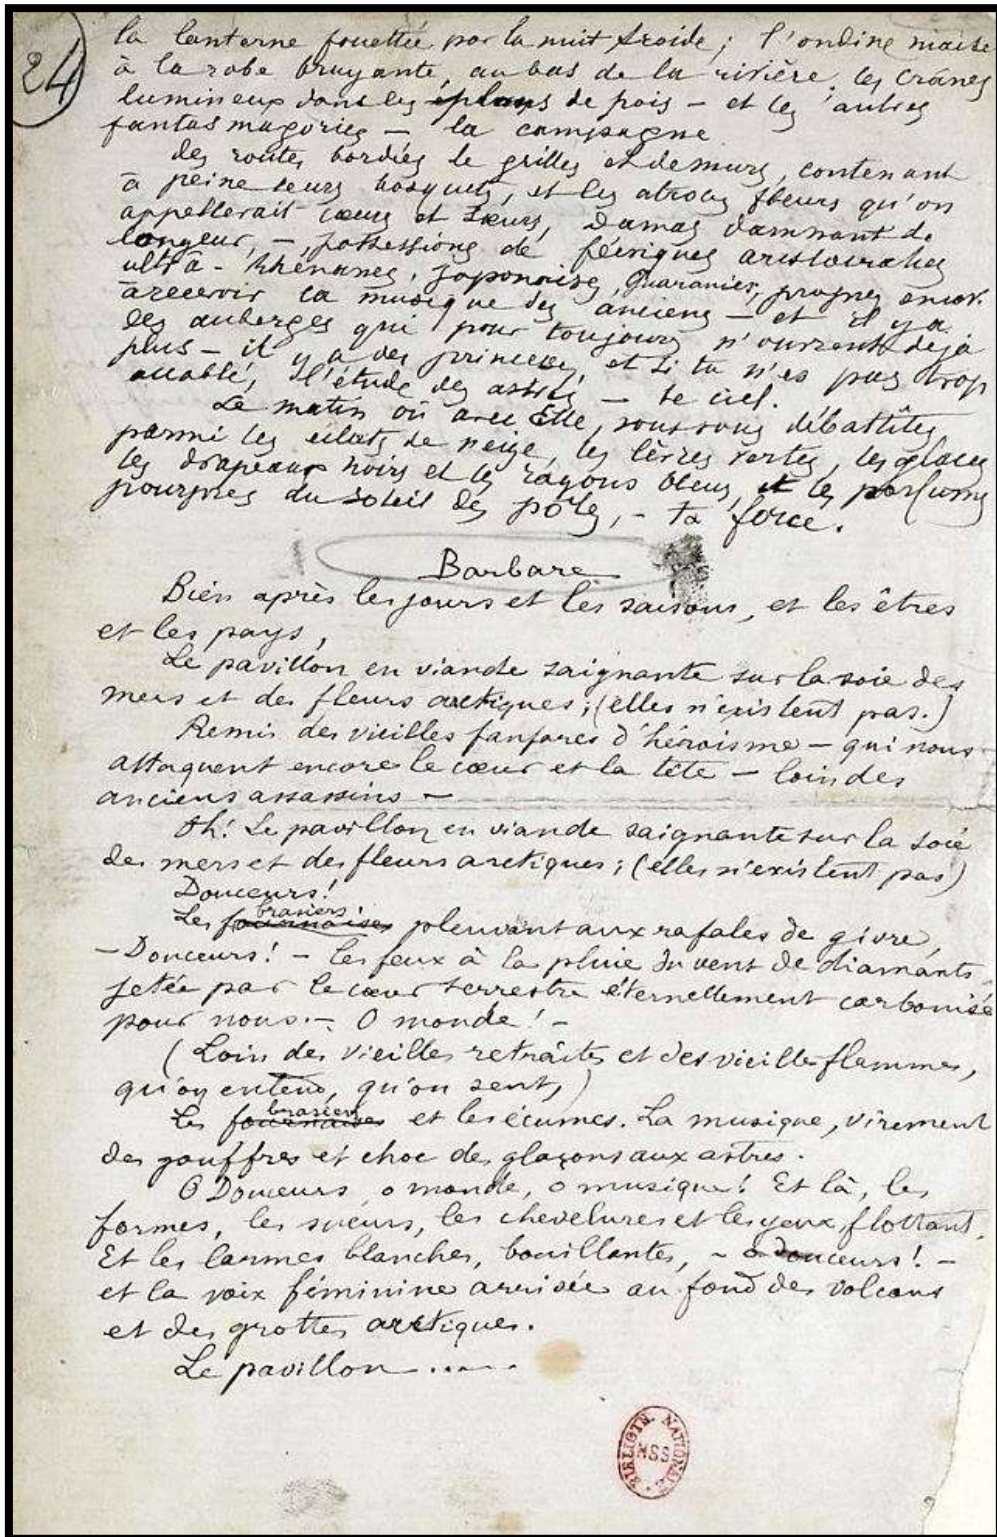 24
la lanterne fouettée par la nuit froide; l'ondine niaise
à la robe bruyante, au bas de la rivière; les crânes
lumineux dans les plans de pois — et les autres
fantasmagories — la campagne.
Des routes bordées de grilles et de murs, contenant
à peine leurs bosquets, et les atroces fleurs qu'on
appellerait cœurs et sœurs, Damas damnant de
longueur, —, possessions de féériques aristocraties
ultra-Rhénanes, Japonaises, Guaranies, propres encor
à recevoir la musique des anciens — et il y a
des auberges qui pour toujours n'ouvrent déjà
plus — il y a des princesses, et si tu n'es pas trop
accablé, l'étude des astres — le ciel.
Le matin où avec Elle, vous vous débattîtes
parmi les éclats de neige, les lèvres vertes, les glaces
les drapeaux noirs et les rayons bleus, et les parfums
pourpres du soleil des pôles, — ta force.
Barbare
Bien après les jours et les saisons, et les êtres
et les pays,
Le pavillon en viande saignante sur la soie des
mers et des fleurs arctiques; (elles n'existent pas.)
Remis des vieilles fanfares d'héroïsme — qui nous
attaquent encore le cœur et la tête — loin des
anciens assassins —
Oh! Le pavillon en viande saignante sur la soie
des mers et des fleurs arctiques; (elles n'existent pas)
Douceurs!
brasiers
Les fournaises pleuvant aux rafales de givre,
— Douceurs! — les feux à la pluie du vent de diamants
jetée par le cœur terrestre éternellement carbonisé
pour nous. — O monde! —
(Loin des vieilles retraites et des vieilles flammes,
qu'on entend, qu'on sent,)
brasiers
Les fournaises et les écumes. La musique, virement
des gouffres et choc des glaçons aux astres.
O Douceurs, o monde, o musique! Et là, les
formes, les sueurs, les chevelures et les yeux, flottant.
Et les larmes blanches, bouillantes, — o douceurs! —
et la voix féminine arrivée au fond des volcans
et des grottes arctiques.
Le pavillon.....
BIBLIOTH. NATIONALE
MSS